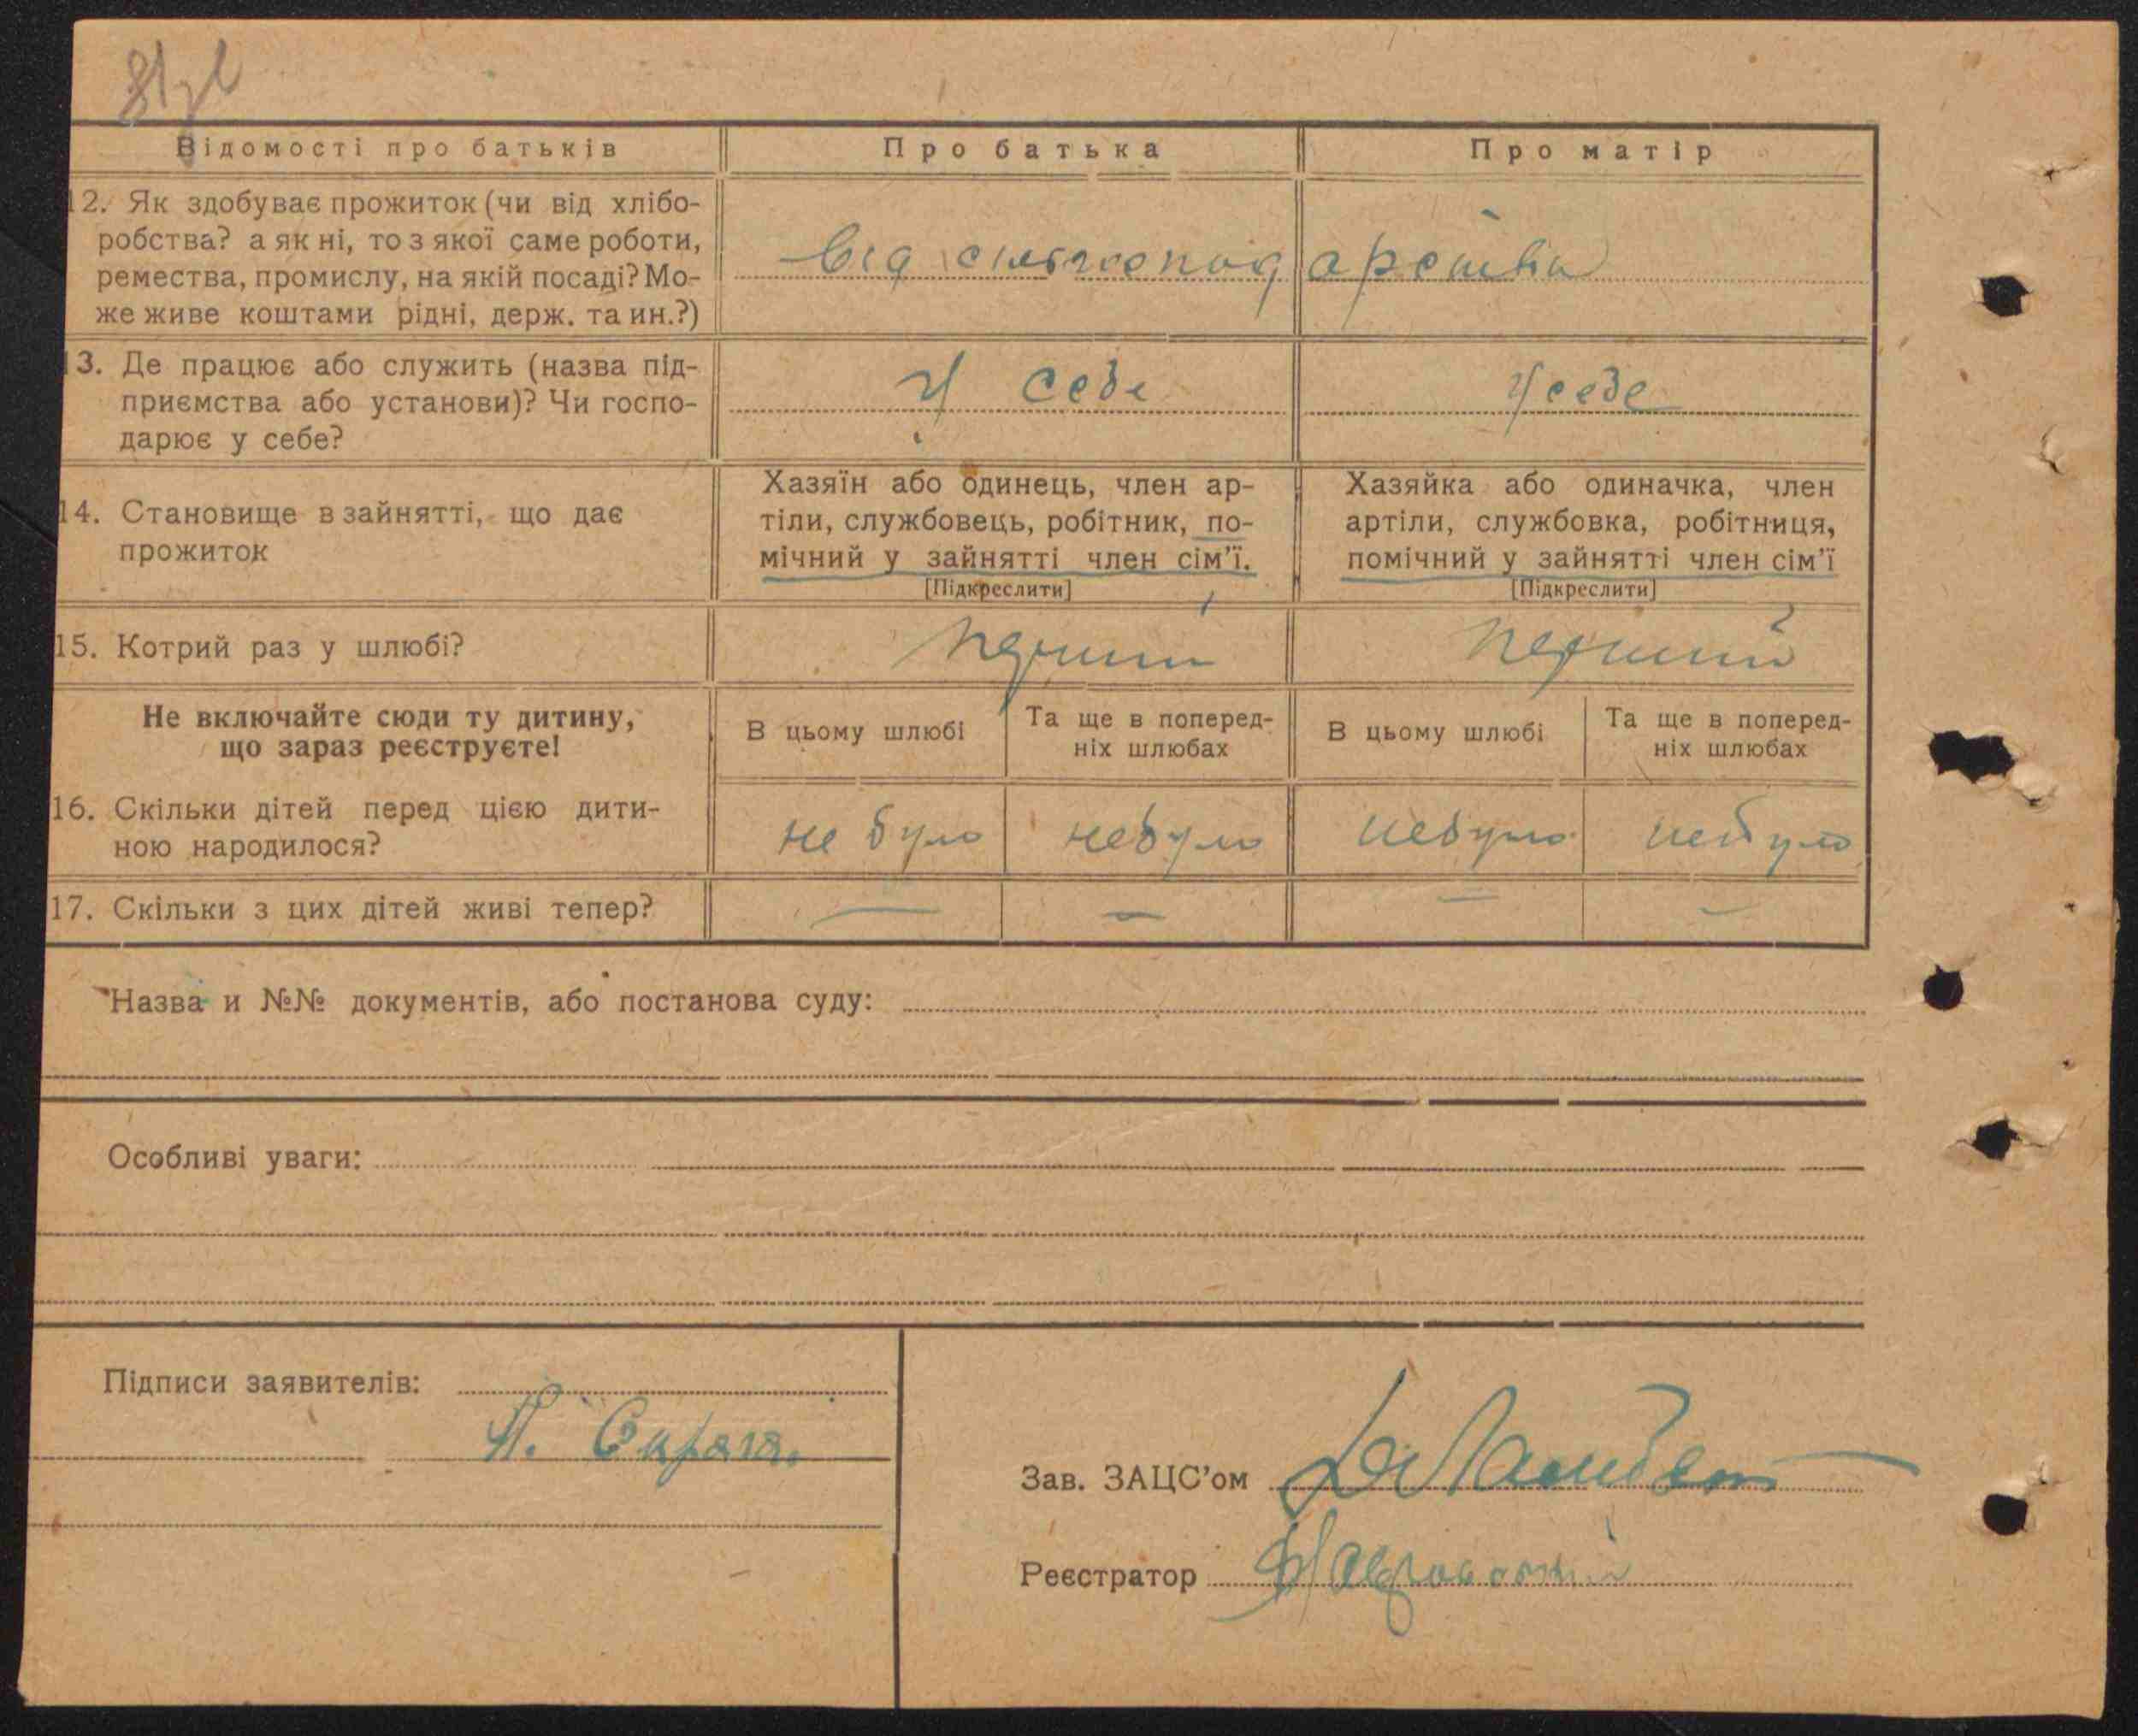 Відомості про батьків
Про батька
Про матір
12. Як здобуває прожиток (чи від хлібо-
робства? а як ні, то з якої саме роботи,
ремества, промислу, на якій посаді? Мо-
же живе коштами рідні, держ. та ин.?)
від
13. Де працює або служить (назва під-
приємства або установи)? Чи госпо-
дарює у себе?
У себе
У себе
14. Становище в зайнятті, що дає
прожиток
Хазяїн або одинець, член ар-
тіли, службовець, робітник, по-
мічний у зайнятті член сім’ї.
[Підкреслити]
Хазяйка або одиначка, член
артіли, службовка, робітниця,
помічний у зайнятті член сім’ї
[Підкреслити]
15. Котрий раз у шлюбі?
перший
перший
Не включайте сюди ту дитину,
що зараз реєструєте!
В цьому шлюбі
Та ще в поперед-
ніх шлюбах
В цьому шлюбі
Та ще в поперед-
ніх шлюбах
16. Скільки дітей перед цією дити-
ною народилося?
не було
небуло
небуло
небуло
17. Скільки з цих дітей живі тепер?
— — — —
Назва и №№ документів, або постанова суду:
Особливі уваги:
Підписи заявителів:
Зав. ЗАЦС’ом
Реєстратор